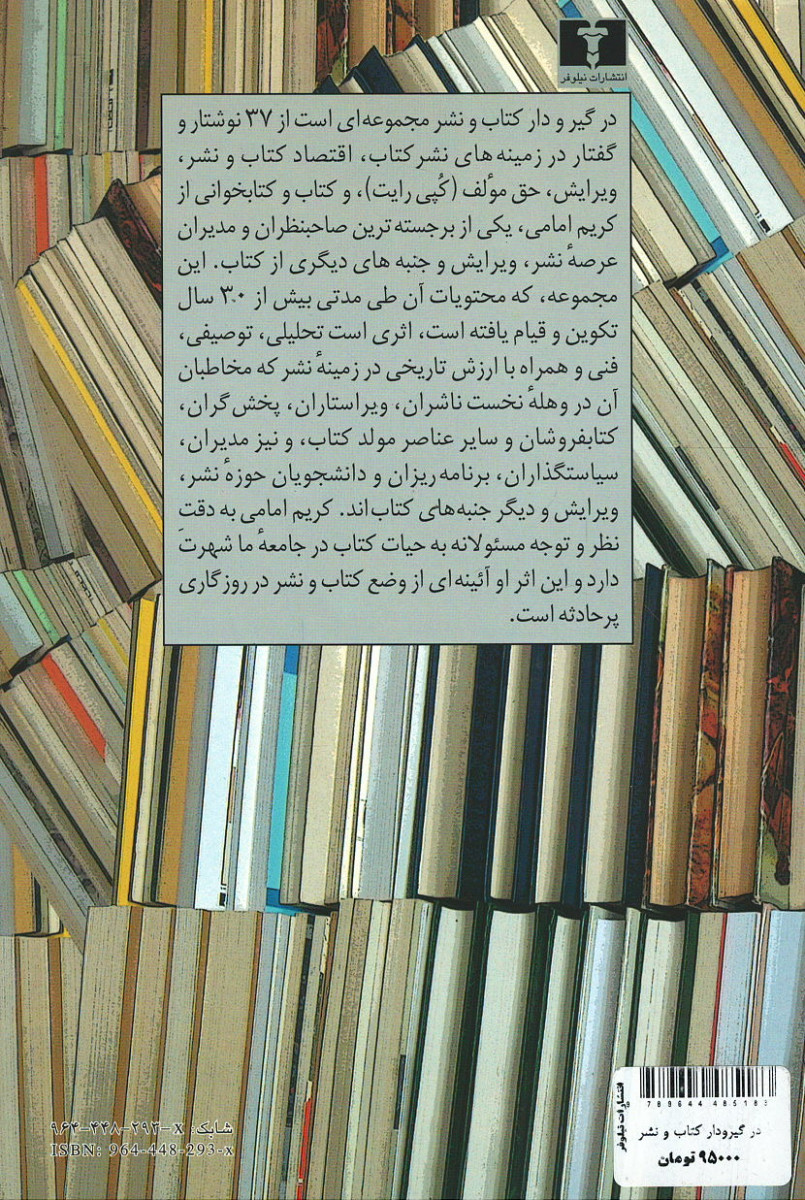 انتشارات نیلوفر
در گیر و دار کتاب و نشر مجموعه‌ای است از ۳۷ نوشتار و
گفتار در زمینه‌های نشر کتاب، اقتصاد کتاب و نشر،
ویرایش، حق مؤلف (کُپی رایت)، و کتاب و کتابخوانی از
کریم امامی، یکی از برجسته‌ترین صاحبنظران و مدیران
عرصهٔ نشر، ویرایش و جنبه‌های دیگری از کتاب. این
مجموعه، که محتویات آن طی مدتی بیش از ۳۰ سال
تکوین و قیام یافته است، اثری است تحلیلی، توصیفی،
فنی و همراه با ارزش تاریخی در زمینهٔ نشر که مخاطبان
آن در وهلهٔ نخست ناشران، ویراستاران، پخش‌گران،
کتابفروشان و سایر عناصر مولد کتاب، و نیز مدیران،
سیاستگذاران، برنامه‌ریزان و دانشجویان حوزهٔ نشر،
ویرایش و دیگر جنبه‌های کتاب‌اند. کریم امامی به دقت
نظر و توجه مسئولانه به حیات کتاب در جامعهٔ ما شهرت
دارد و این اثر او آئینه‌ای از وضع کتاب و نشر در روزگاری
پرحادثه است.
شابک: ۹۶۴-۴۴۸-۲۹۳-x
ISBN: 964-448-293-x
انتشارات نیلوفر
در گیرودار کتاب و نشر
۹۵۰۰۰ تومان